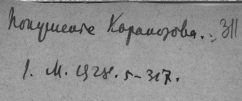 Покушение Каракозова. 311
1. М. 1928. 5-317.